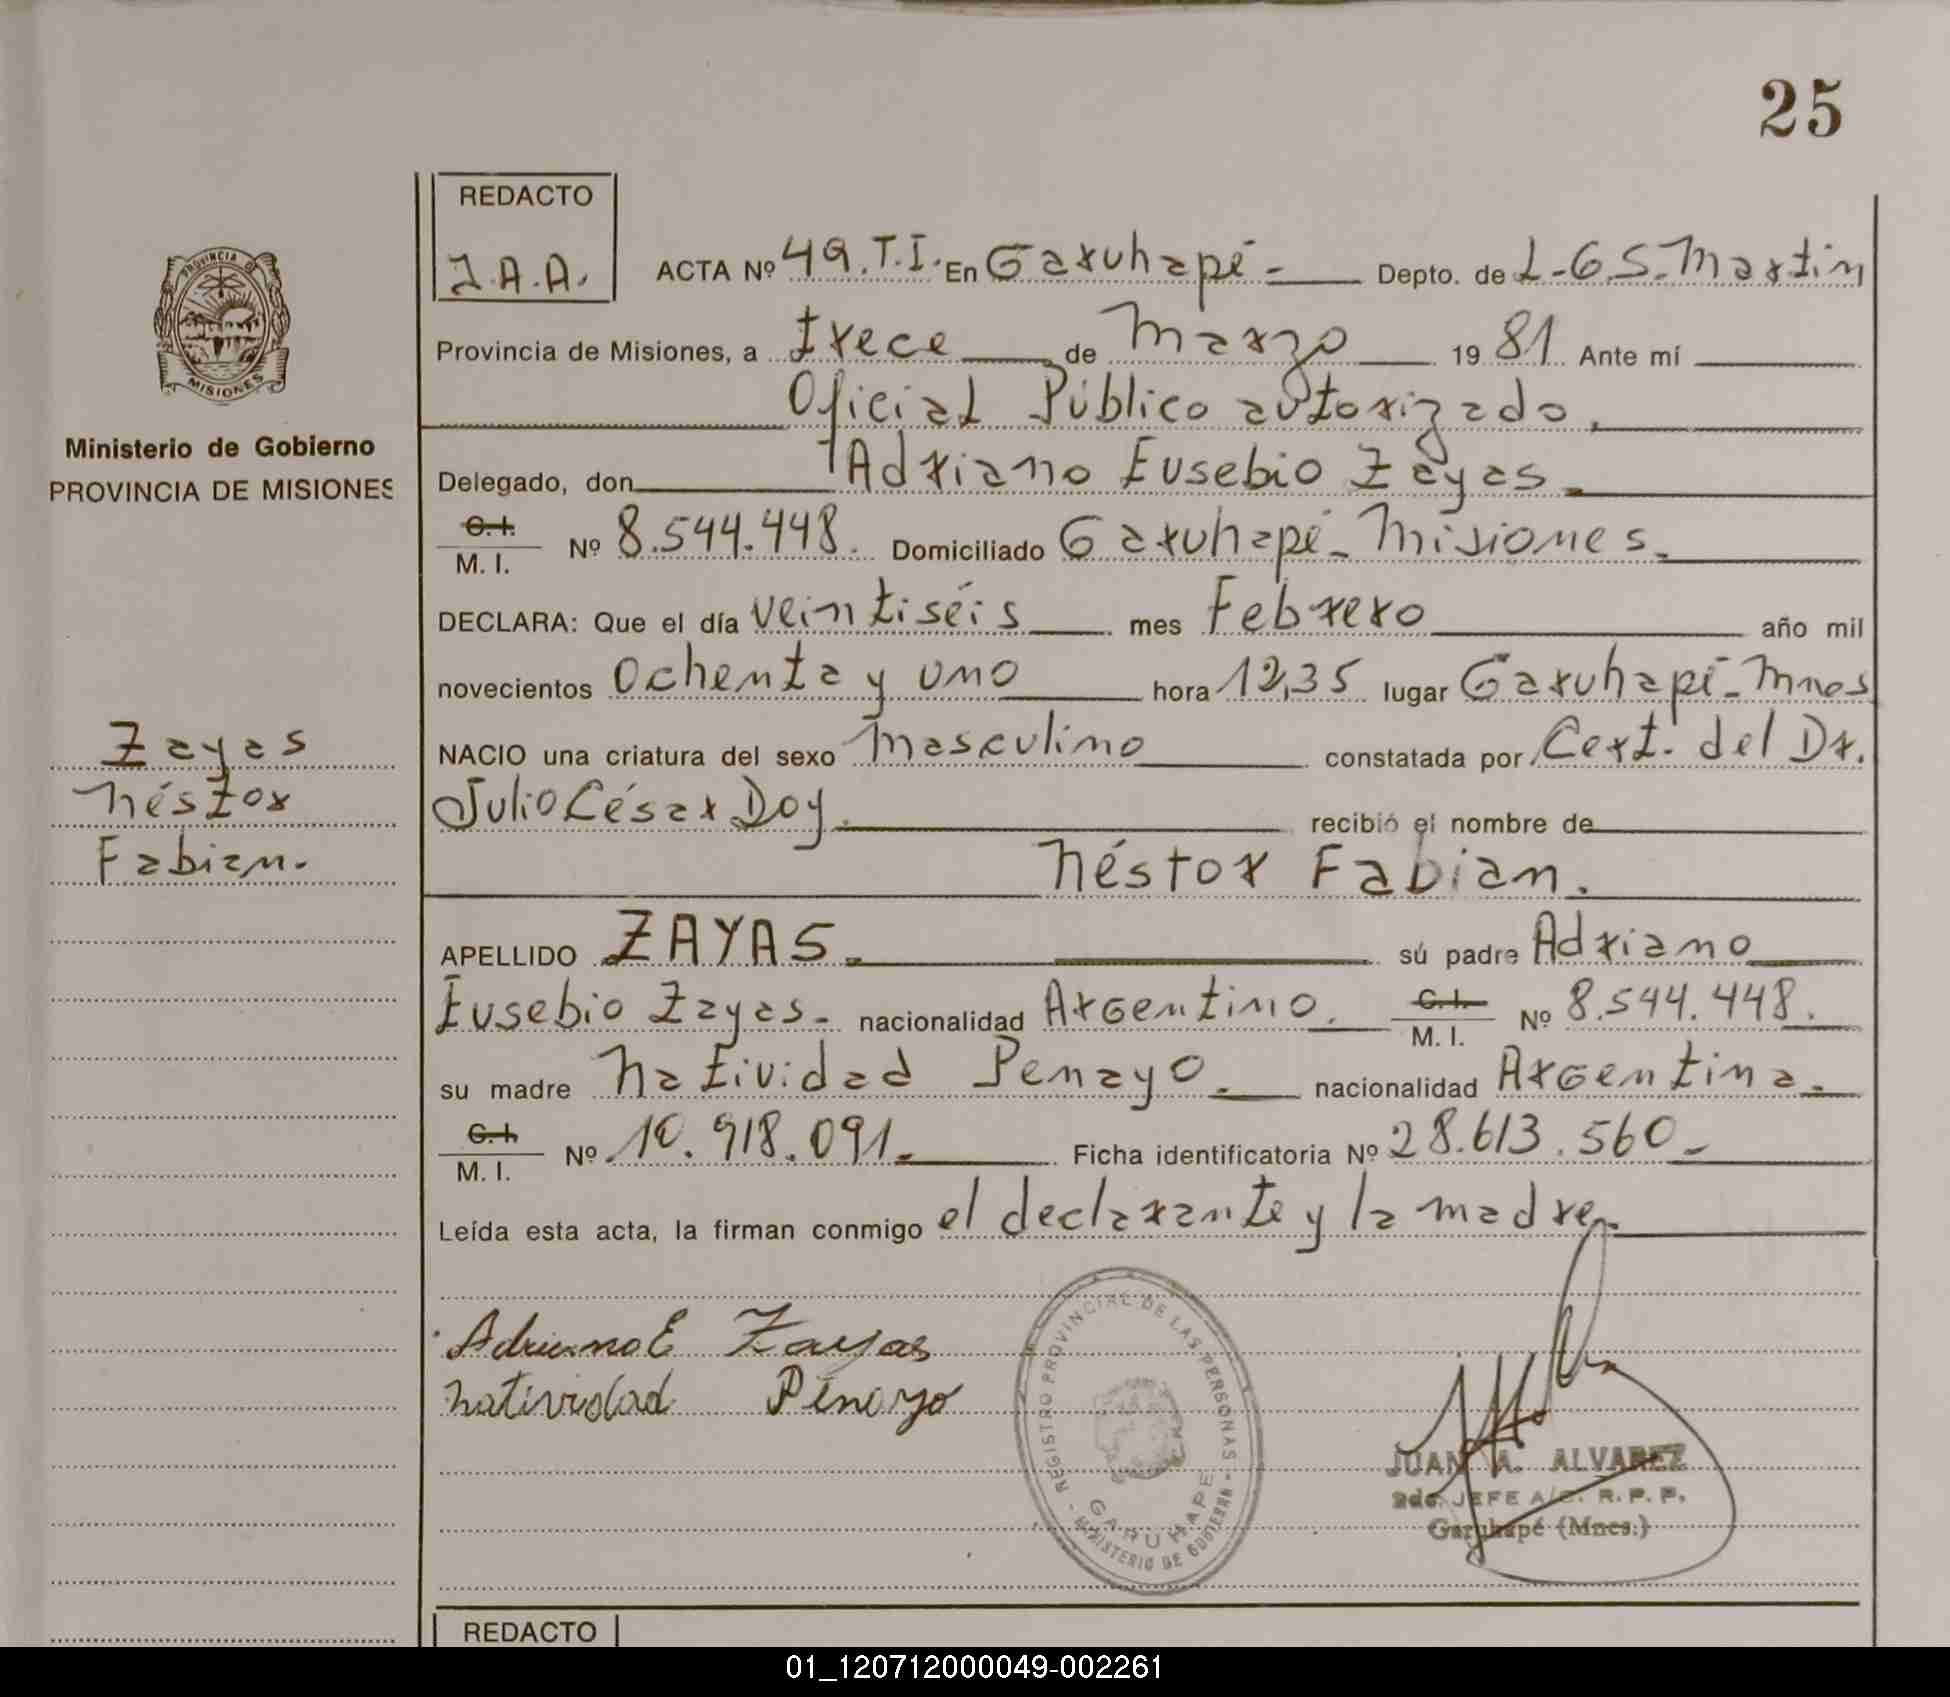 25
REDACTO
J.A.A.
ACTA Nº 49.T.I. En Garuhapé- Depto. de L-G.S.Martin
Provincia de Misiones, a trece de Marzo 19 81 Ante mí
Oficial Público autorizado.
Delegado, don Adriano Eusebio Zayas.
C.I.
M. I. Nº 8.544.448. Domiciliado Garuhapé-Misiones.
DECLARA: Que el día veintiséis mes Febrero año mil
novecientos Ochenta y uno hora 12,35 lugar Garuhapé-Mnes
NACIO una criatura del sexo Masculino constatada por Cert. del Dr.
Julio César Doy. recibió el nombre de
Néstor Fabian.
APELLIDO ZAYAS. sú padre Adriano
Eusebio Zayas- nacionalidad Argentino. C.I. M. I. Nº 8.544.448.
su madre Natividad Penayo. nacionalidad Argentina.
C.I.
M. I. Nº 10.918.091. Ficha identificatoria Nº 28.613.560-
Leída esta acta, la firman conmigo el declarante y la madre.
Adriano E Zayas
Natividad Penayo
REGISTRO PROVINCIAL DE LAS PERSONAS - MINISTERIO DE GOBIERNO -
GARUHAPE
JUAN A. ALVAREZ
2do. JEFE A/C. R.P.P.
Garuhapé (Mnes.)
PROVINCIA DE
MISIONES
Ministerio de Gobierno
PROVINCIA DE MISIONES
Zayas
Néstor
Fabian.
REDACTO
01_120712000049-002261